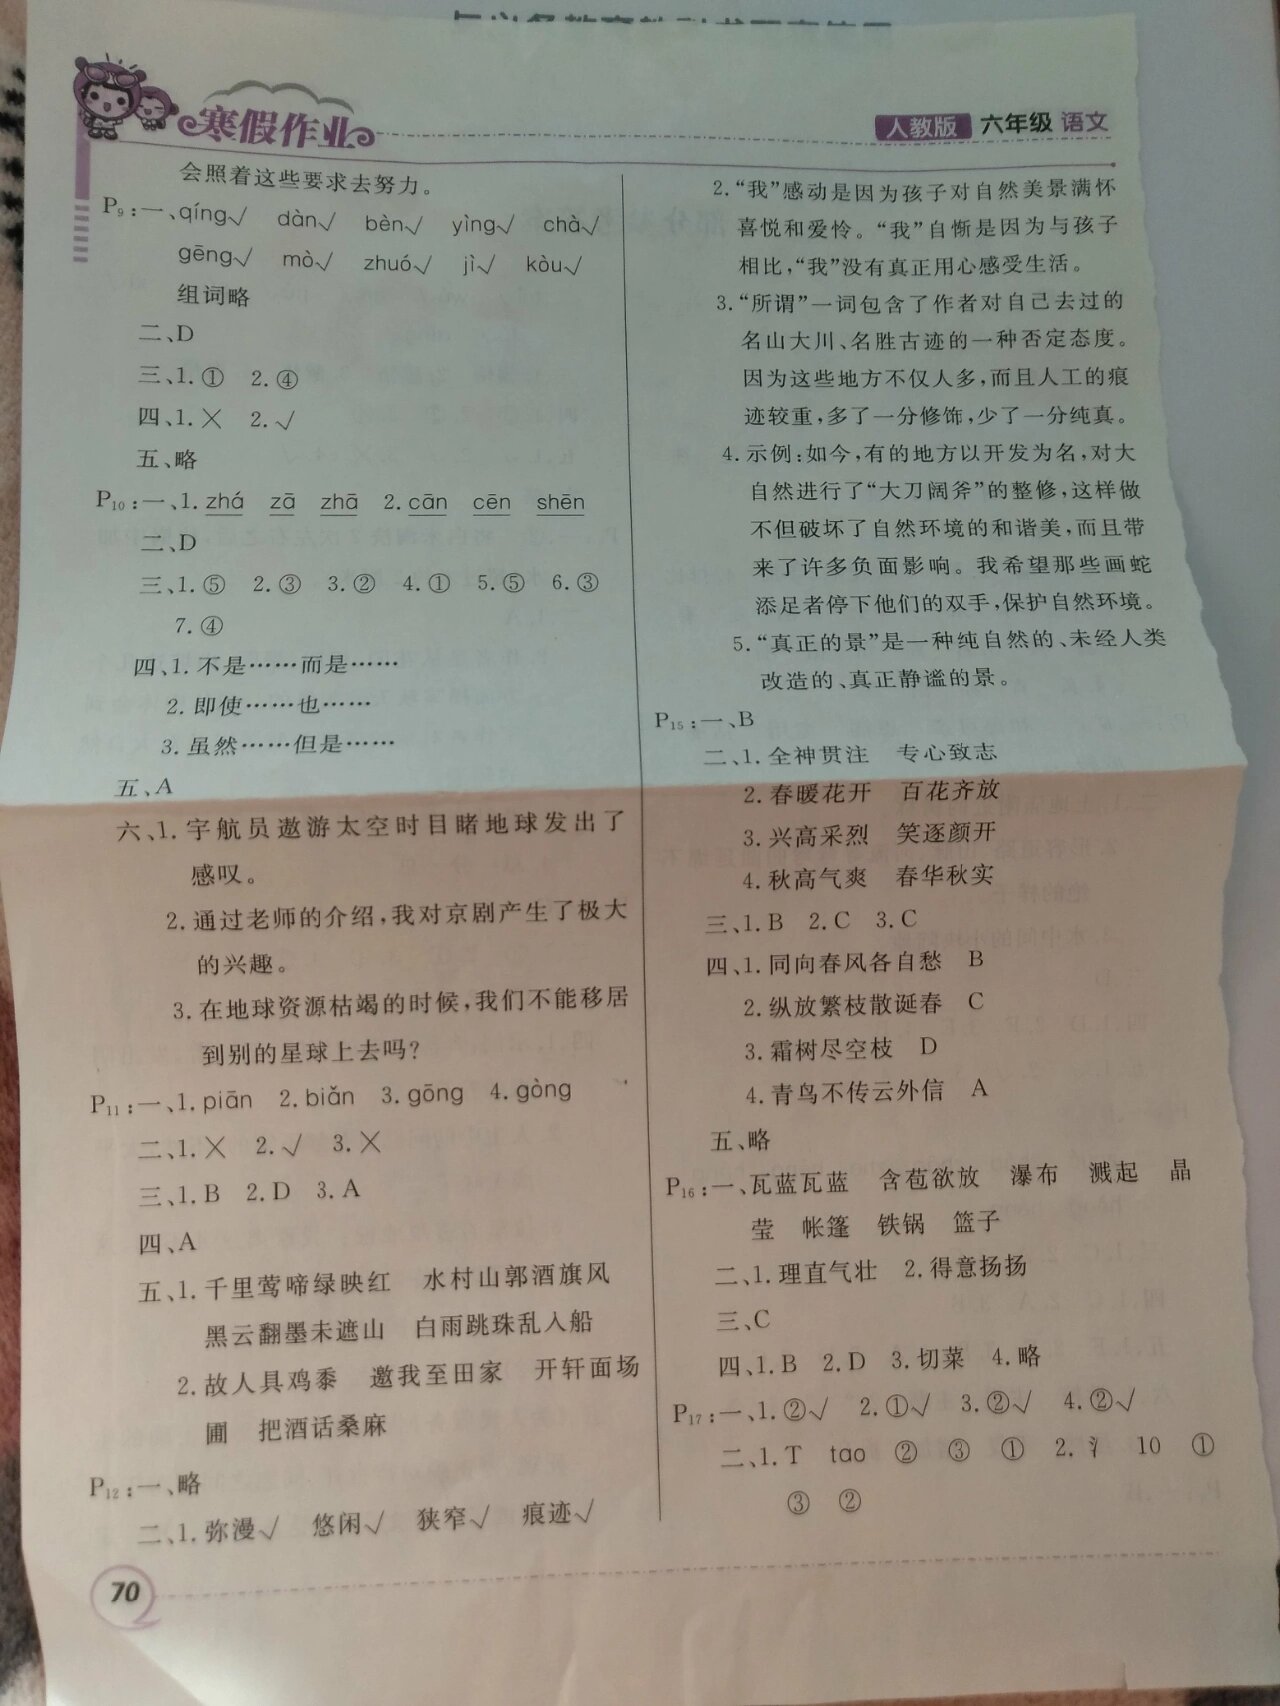 寒假作业
人教版 六年级 语文
会照着这些要求去努力。
P9:一、qíng√ dàn√ bèn√ yìng√ chà√
gēng√ mò√ zhuó√ jì√ kòu√
组词略
二、D
三、1.① 2.④
四、1.× 2.√
五、略
P10:一、1.zhá zā zhā 2.cān cēn shēn
二、D
三、1.⑤ 2.③ 3.② 4.① 5.⑤ 6.③
7.④
四、1.不是……而是……
2.即使……也……
3.虽然……但是……
五、A
六、1.宇航员遨游太空时目睹地球发出了
感叹。
2.通过老师的介绍,我对京剧产生了极大
的兴趣。
3.在地球资源枯竭的时候,我们不能移居
到别的星球上去吗?
P11:一、1.piān 2.biǎn 3.gōng 4.gòng
二、1.× 2.√ 3.×
三、1.B 2.D 3.A
四、A
五、1.千里莺啼绿映红 水村山郭酒旗风
黑云翻墨未遮山 白雨跳珠乱入船
2.故人具鸡黍 邀我至田家 开轩面场
圃 把酒话桑麻
P12:一、略
二、1.弥漫√ 悠闲√ 狭窄√ 痕迹√
2.“我”感动是因为孩子对自然美景满怀
喜悦和爱怜。“我”自惭是因为与孩子
相比,“我”没有真正用心感受生活。
3.“所谓”一词包含了作者对自己去过的
名山大川、名胜古迹的一种否定态度。
因为这些地方不仅人多,而且人工的痕
迹较重,多了一分修饰,少了一分纯真。
4.示例:如今,有的地方以开发为名,对大
自然进行了“大刀阔斧”的整修,这样做
不但破坏了自然环境的和谐美,而且带
来了许多负面影响。我希望那些画蛇
添足者停下他们的双手,保护自然环境。
5.“真正的景”是一种纯自然的、未经人类
改造的、真正静谧的景。
P15:一、B
二、1.全神贯注 专心致志
2.春暖花开 百花齐放
3.兴高采烈 笑逐颜开
4.秋高气爽 春华秋实
三、1.B 2.C 3.C
四、1.同向春风各自愁 B
2.纵放繁枝散诞春 C
3.霜树尽空枝 D
4.青鸟不传云外信 A
五、略
P16:一、瓦蓝瓦蓝 含苞欲放 瀑布 溅起 晶
莹 帐篷 铁锅 篮子
二、1.理直气壮 2.得意扬扬
三、C
四、1.B 2.D 3.切菜 4.略
P17:一、1.②√ 2.①√ 3.②√ 4.②√
二、1.T tao ② ③ ① 2.氵 10 ①
③ ②
70